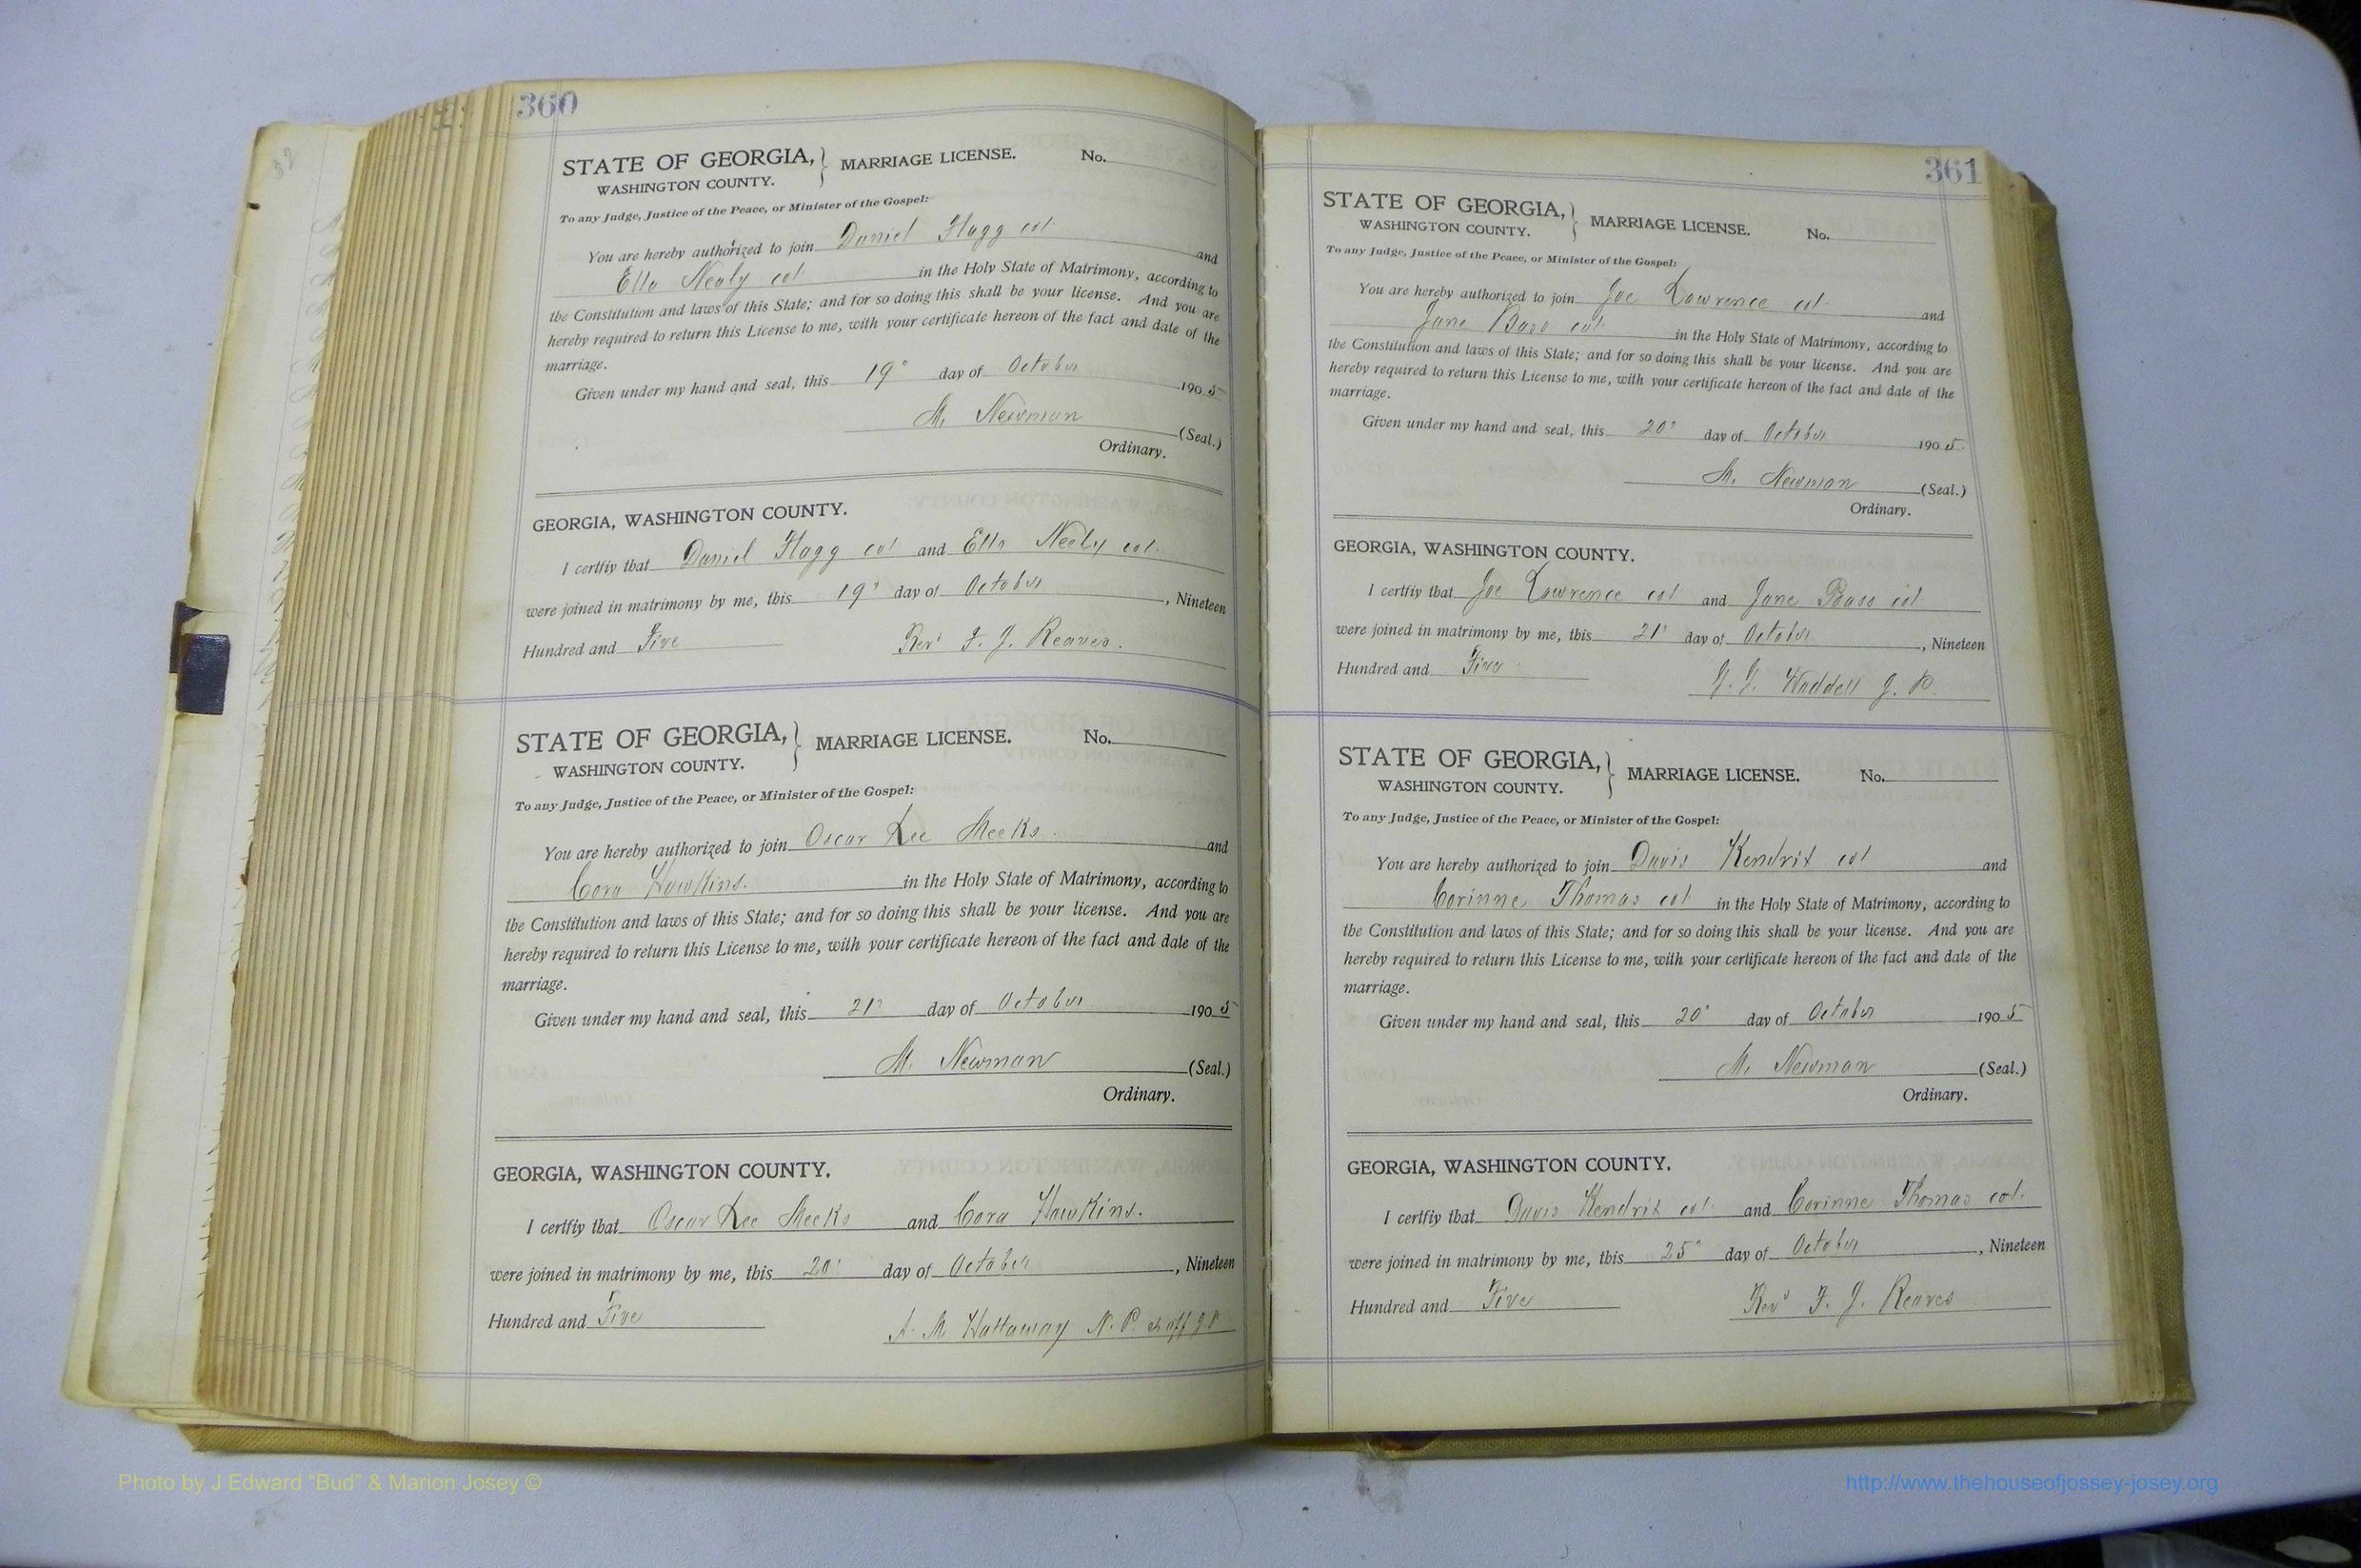 360
STATE OF GEORGIA, } MARRIAGE LICENSE. No.
WASHINGTON COUNTY.
To any Judge, Justice of the Peace, or Minister of the Gospel:
You are hereby authorized to join Daniel Flagg col. and
Ella Nealy col in the Holy State of Matrimony, according to
the Constitution and laws of this State; and for so doing this shall be your license. And you are
hereby required to return this License to me, with your certificate hereon of the fact and date of the
marriage.
Given under my hand and seal, this 19" day of October 1905
M. Newman (Seal.)
Ordinary.
GEORGIA, WASHINGTON COUNTY.
I certfiy that Daniel Flagg col and Ella Nealy col.
were joined in matrimony by me, this 19" day of October, Nineteen
Hundred and Five Rev F. J. Reaves.
STATE OF GEORGIA, } MARRIAGE LICENSE. No.
WASHINGTON COUNTY.
To any Judge, Justice of the Peace, or Minister of the Gospel:
You are hereby authorized to join Oscar Lee Meeks and
Cora Hawkins. in the Holy State of Matrimony, according to
the Constitution and laws of this State; and for so doing this shall be your license. And you are
hereby required to return this License to me, with your certificate hereon of the fact and date of the
marriage.
Given under my hand and seal, this 21" day of October 1905
M. Newman (Seal.)
Ordinary.
GEORGIA, WASHINGTON COUNTY.
I certfiy that Oscar Lee Meeks and Cora Hawkins.
were joined in matrimony by me, this 20" day of October, Nineteen
Hundred and Five A. M. Hattaway N. P.
361
STATE OF GEORGIA, } MARRIAGE LICENSE. No.
WASHINGTON COUNTY.
To any Judge, Justice of the Peace, or Minister of the Gospel:
You are hereby authorized to join Joe Lawrence col. and
Jane Bass col. in the Holy State of Matrimony, according to
the Constitution and laws of this State; and for so doing this shall be your license. And you are
hereby required to return this License to me, with your certificate hereon of the fact and date of the
marriage.
Given under my hand and seal, this 20" day of October 1905
M. Newman (Seal.)
Ordinary.
GEORGIA, WASHINGTON COUNTY.
I certfiy that Joe Lawrence col and Jane Bass col
were joined in matrimony by me, this 21" day of October, Nineteen
Hundred and Five Waddell J. P.
STATE OF GEORGIA, } MARRIAGE LICENSE. No.
WASHINGTON COUNTY.
To any Judge, Justice of the Peace, or Minister of the Gospel:
You are hereby authorized to join Davis Kendrit col and
Corinne Thomas col in the Holy State of Matrimony, according to
the Constitution and laws of this State; and for so doing this shall be your license. And you are
hereby required to return this License to me, with your certificate hereon of the fact and date of the
marriage.
Given under my hand and seal, this 20" day of October 1905
M. Newman (Seal.)
Ordinary.
GEORGIA, WASHINGTON COUNTY.
I certfiy that Davis Kendrit col. and Corinne Thomas col.
were joined in matrimony by me, this 25" day of October, Nineteen
Hundred and Five Rev F. J. Reaves
Photo by J Edward “Bud” & Marion Josey ©
http://www.thehouseofjossey-josey.org